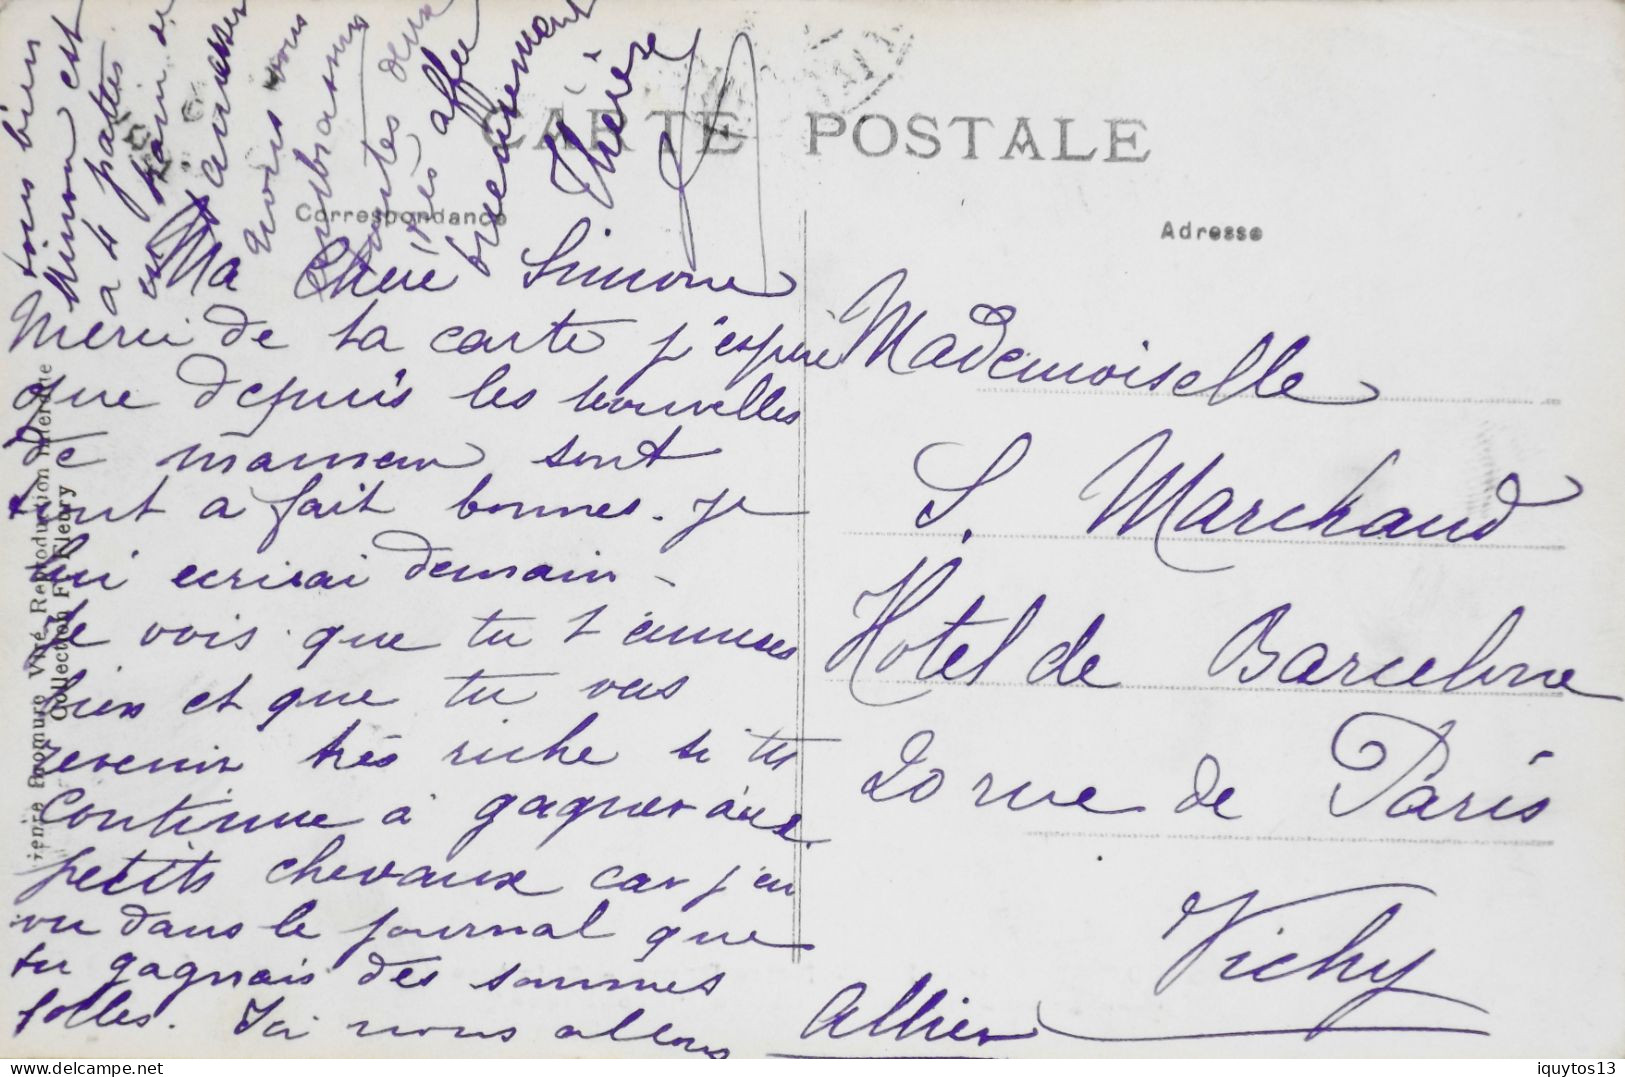 CARTE POSTALE
Correspondance
Adresse
Ma Chère Simone
Merci de ta carte j'espère
que depuis les nouvelles
de maman sont
tout a fait bonnes. Je
lui ecrirai demain -
Je vois que tu t'amuses
bien et que tu vas
revenir très riche si tu
continue à gagner aux
petits chevaux car j'ai
vu dans le journal que
tu gagnais des sommes
folles. Ici nous allons
tous bien
Minon est
a 4 pattes
en train de
s'amuser
nous vous
embrassons
toutes deux
très affec
tueusement
Thérèse
Mademoiselle
S. Marchand
Hotel de Barcelone
20 rue de Paris
Vichy
Allier
Bromure Vitré Reproduction Interdite
Collection F. Fleury
www.delcampe.net
iquytos13